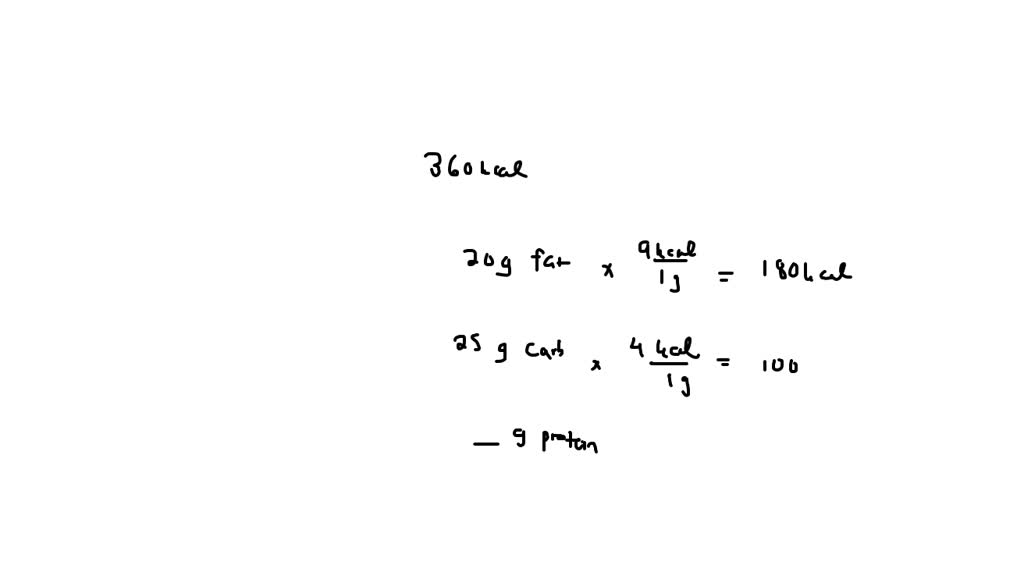 360 kcal
20g fat × 9kcal/1g = 180kcal
25 g carb × 4 kcal/1g = 100
— g protein